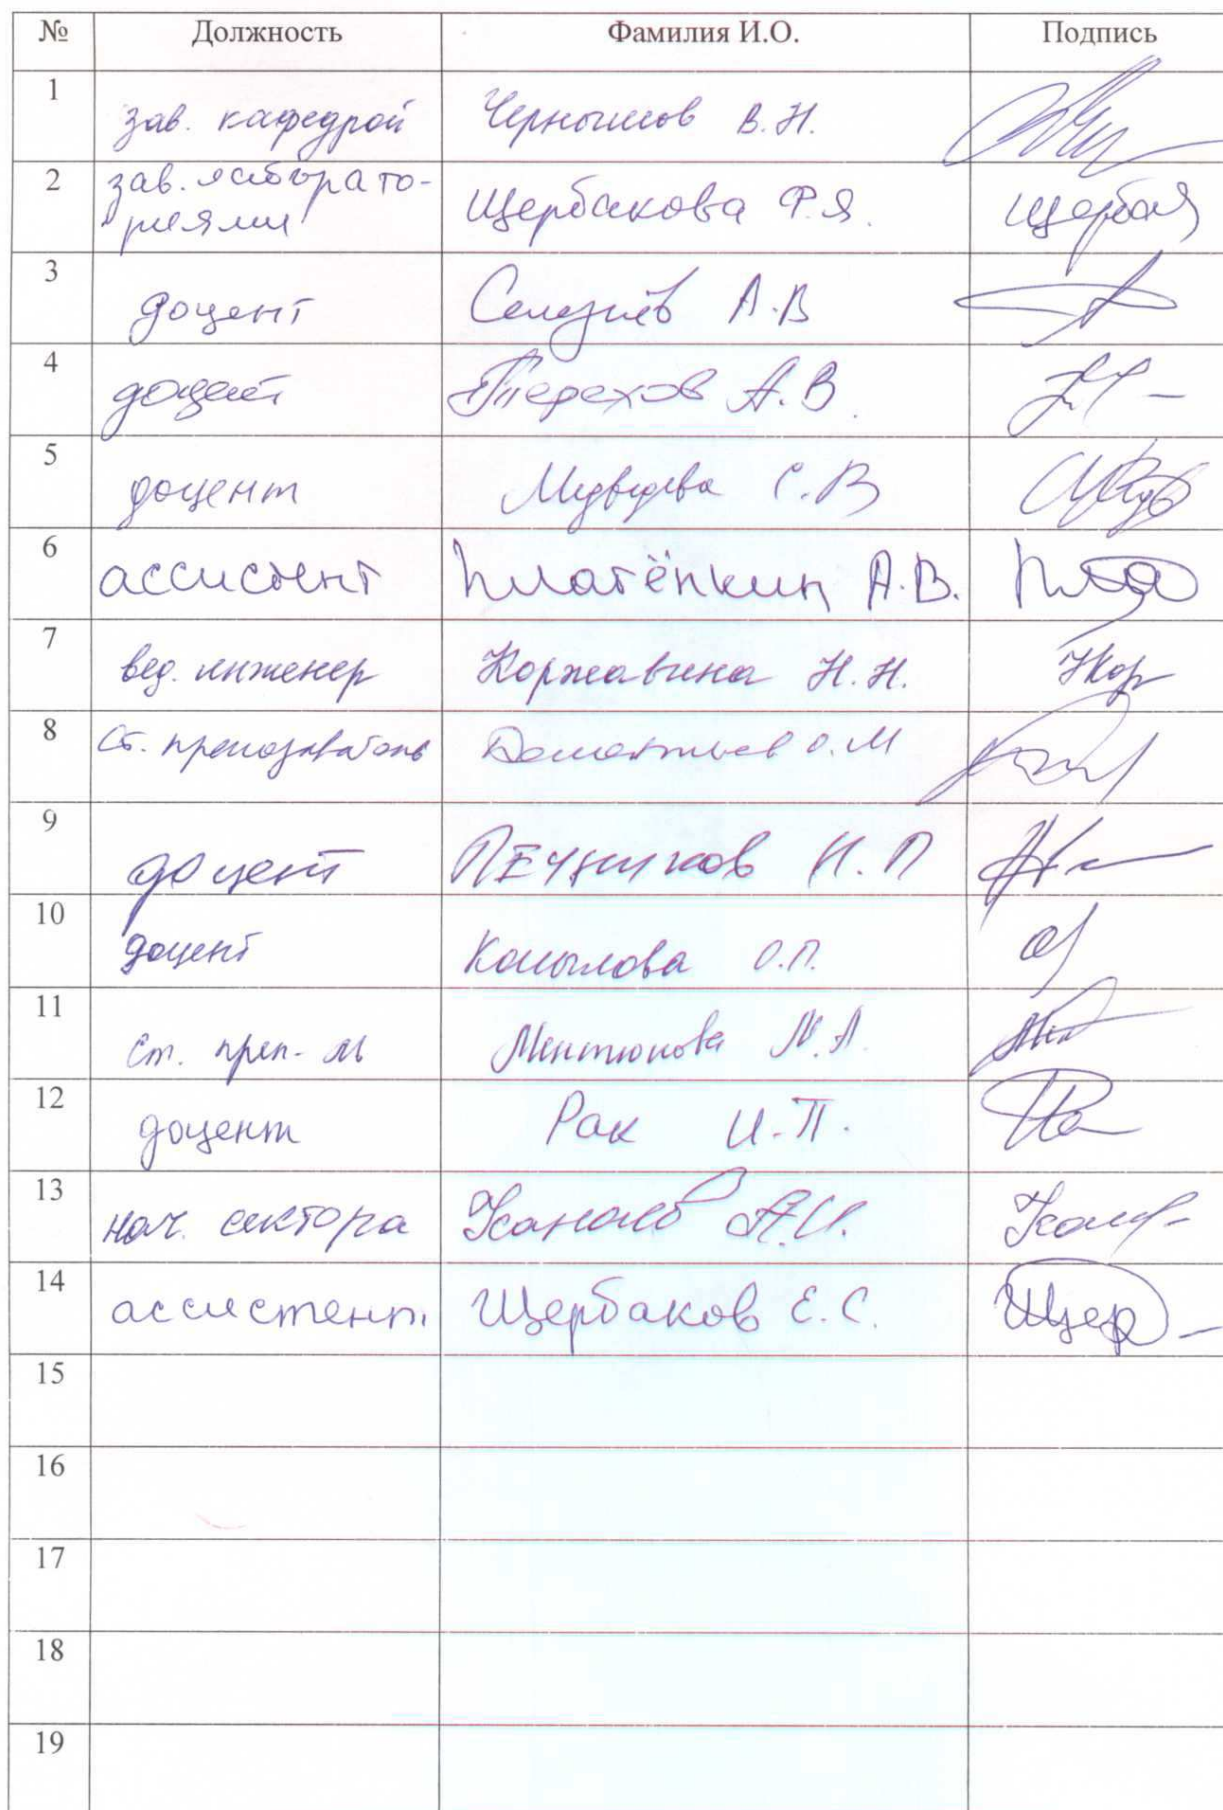 № Должность Фамилия И.О. Подпись
1 зав. кафедрой Чернышов В.Н.
2 зав. лаборато-
риями Щербакова Ф.Я. Щербак
3 доцент Селезнёв А.В
4 доцент Терехов А.В.
5 доцент Медведева С.В
6 ассистент Платёнкин А.В.
7 вед. инженер Коржавина Н.Н. НКор
8 ст. преподаватель Дементьев О.М
9 доцент ПЕЧНИКОВ Н.П
10 доцент Копылова О.П.
11 ст. преп-ль Ментюкова М.А.
12 доцент Рак И.П.
13 нач. сектора А.И.
14 ассистент. Щербаков Е.С. Щер
15
16
17
18
19